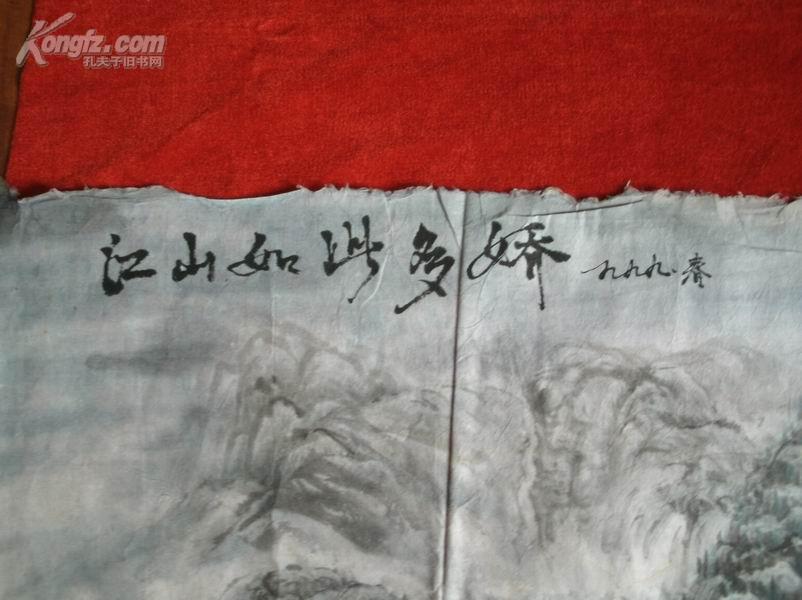 Kongfz.com
孔夫子旧书网
江山如此多娇 一九九九.春